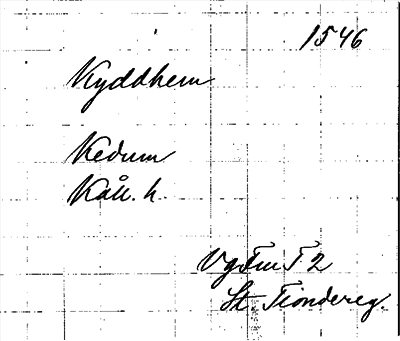 1546
Kyddhem
Kedum
Kåll. h.
VgFm T 2
St. Tiondereg.